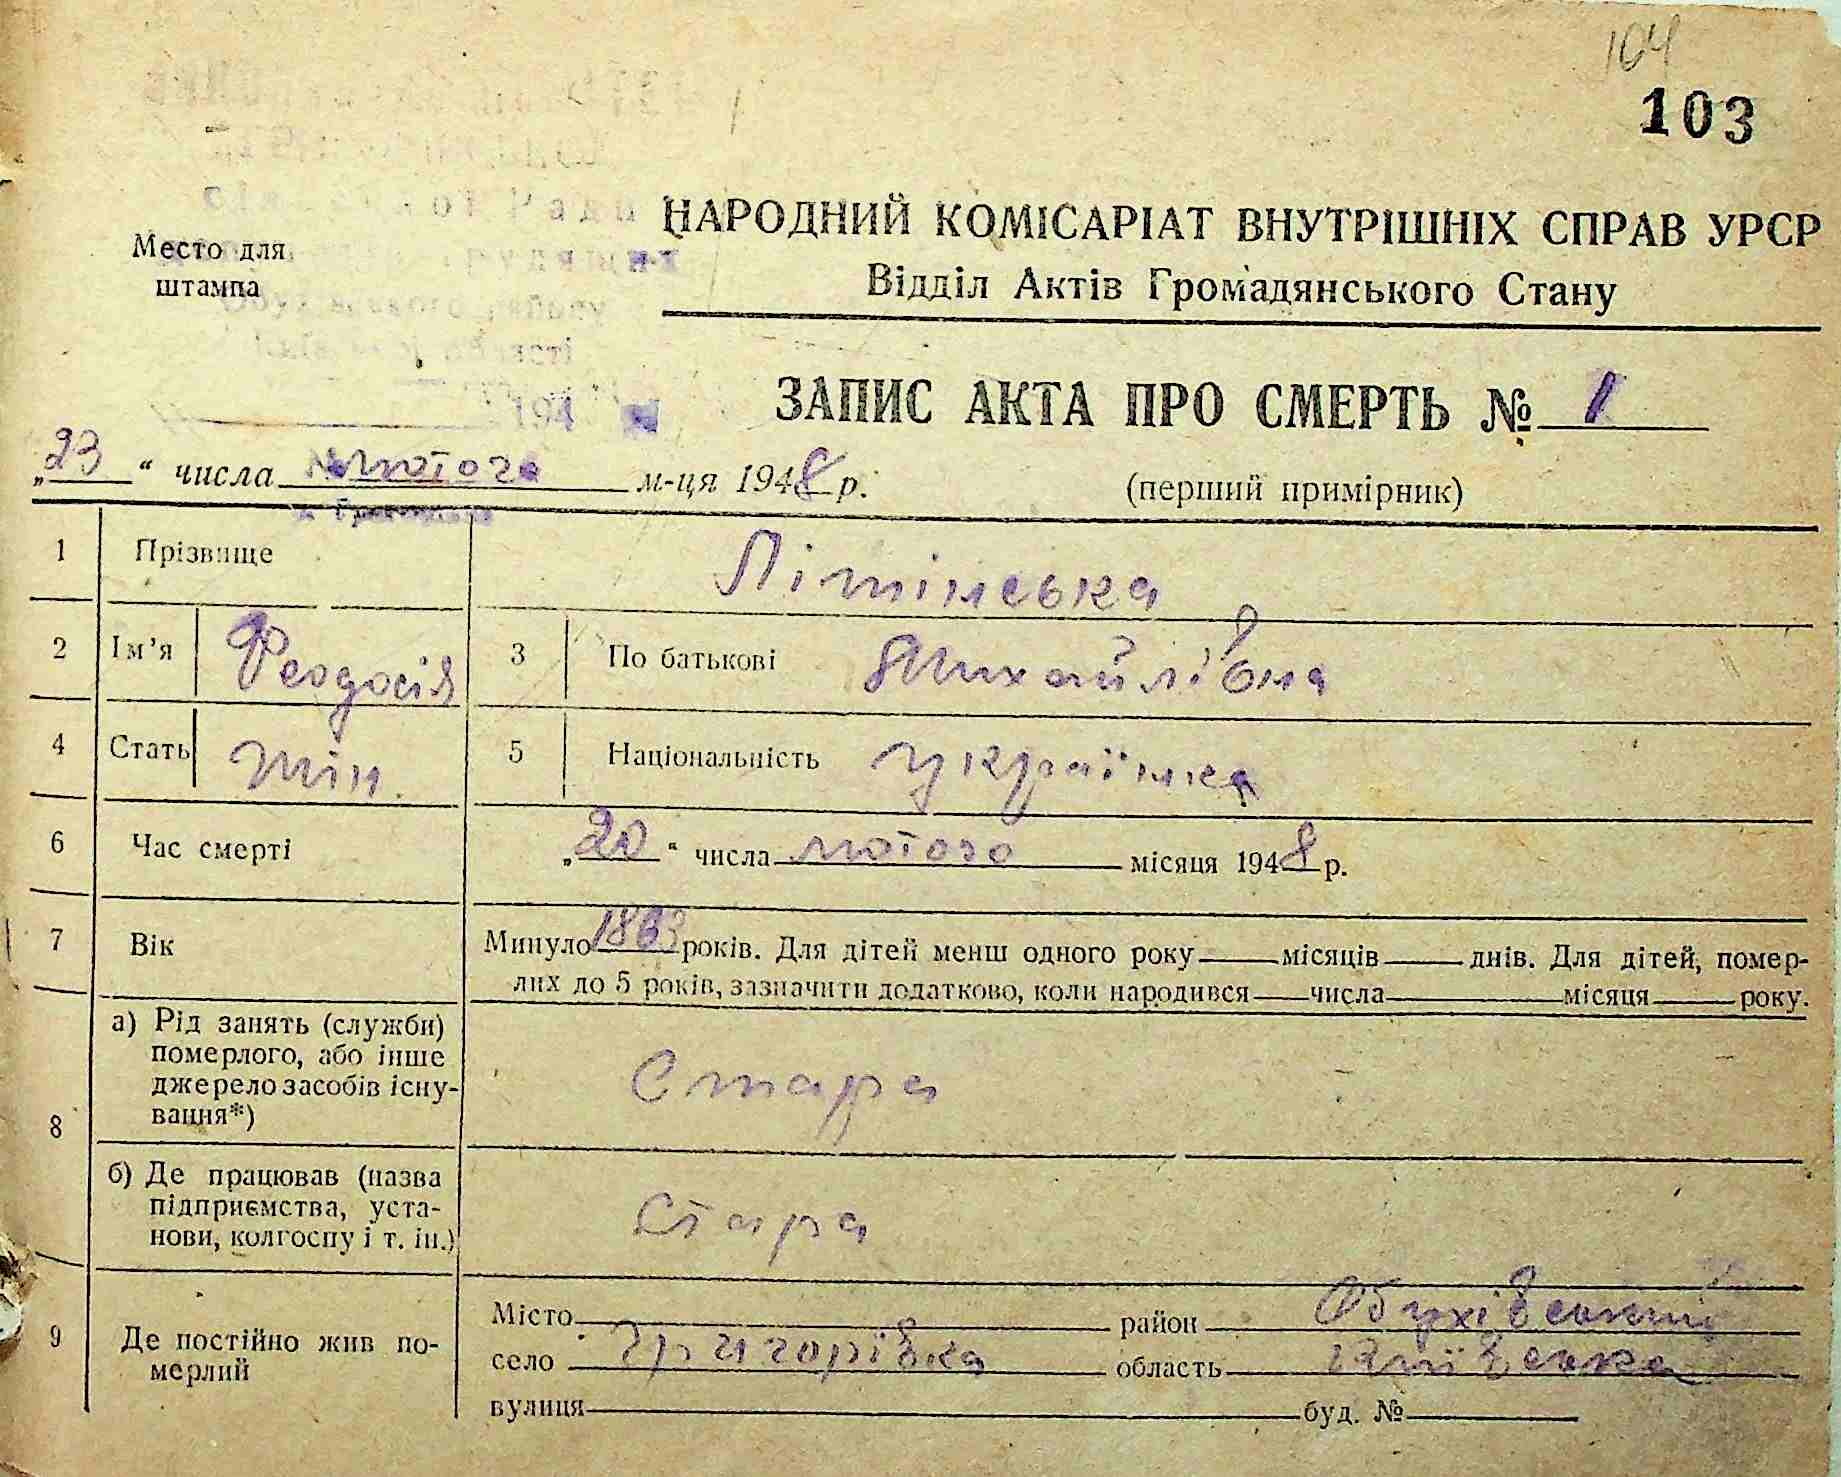 104
103
НАРОДНИЙ КОМІСАРІАТ ВНУТРІШНІХ СПРАВ УРСР
Відділ Актів Громадянського Стану
Место для
штампа
ЗАПИС АКТА ПРО СМЕРТЬ № 1
„23“ числа лютого м-ця 1948 р.
(перший примірник)
1 Прізвище Літінська
2 Ім’я Феодосія 3 По батькові Михайлівна
4 Стать жін. 5 Національність українка
6 Час смерті „20“ числа лютого місяця 1948 р.
7 Вік Минуло 1863 років. Для дітей менш одного року місяців днів. Для дітей, помер-
лих до 5 років, зазначити додатково, коли народився числа місяця року.
8 а) Рід занять (служби)
померлого, або інше
джерело засобів існу-
вання*)
Стара
б) Де працював (назва
підприємства, уста-
нови, колгоспу і т. ін.)
Стара
9 Де постійно жив по-
мерлий
Місто район Обухівський
село Григорівка область Київська
вулиця буд. №